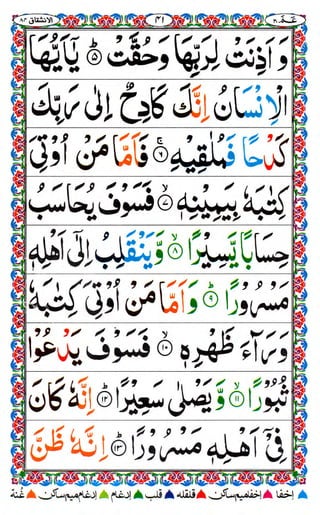 عـمّ ٣٠ ۴١ الانشقاق ٨۴
وَ اَذِنَتْ لِرَبِّهَا وَحُقَّتْ ۝٥ يٰۤاَيُّهَا
الْاِنْسَانُ اِنَّكَ كَادِحٌ اِلٰى رَبِّكَ
كَدْحًا فَمُلٰقِيْهِ ۝٦ۚ فَاَمَّا مَنْ اُوْتِىَ
كِتٰبَهٗ بِيَمِيْنِهٖ ۝٧ۙ فَسَوْفَ يُحَاسَبُ
حِسَابًا يَّسِيْرًا ۝٨ۙ وَّيَنْقَلِبُ اِلٰٓى اَهْلِهٖ
مَسْرُوْرًا ۝٩ؕ وَاَمَّا مَنْ اُوْتِىَ كِتٰبَهٗ
وَرَآءَ ظَهْرِهٖ ۝١٠ۙ فَسَوْفَ يَدْعُوْا
ثُبُوْرًا ۝١١ۙ وَّيَصْلٰى سَعِيْرًا ۝١٢ؕ اِنَّهٗ كَانَ
فِىْۤ اَهْلِهٖ مَسْرُوْرًا ۝١٣ؕ اِنَّهٗ ظَنَّ
اخفا اخفامیم ساکن قلقله قلب ادغام ادغام میم ساکن غنة